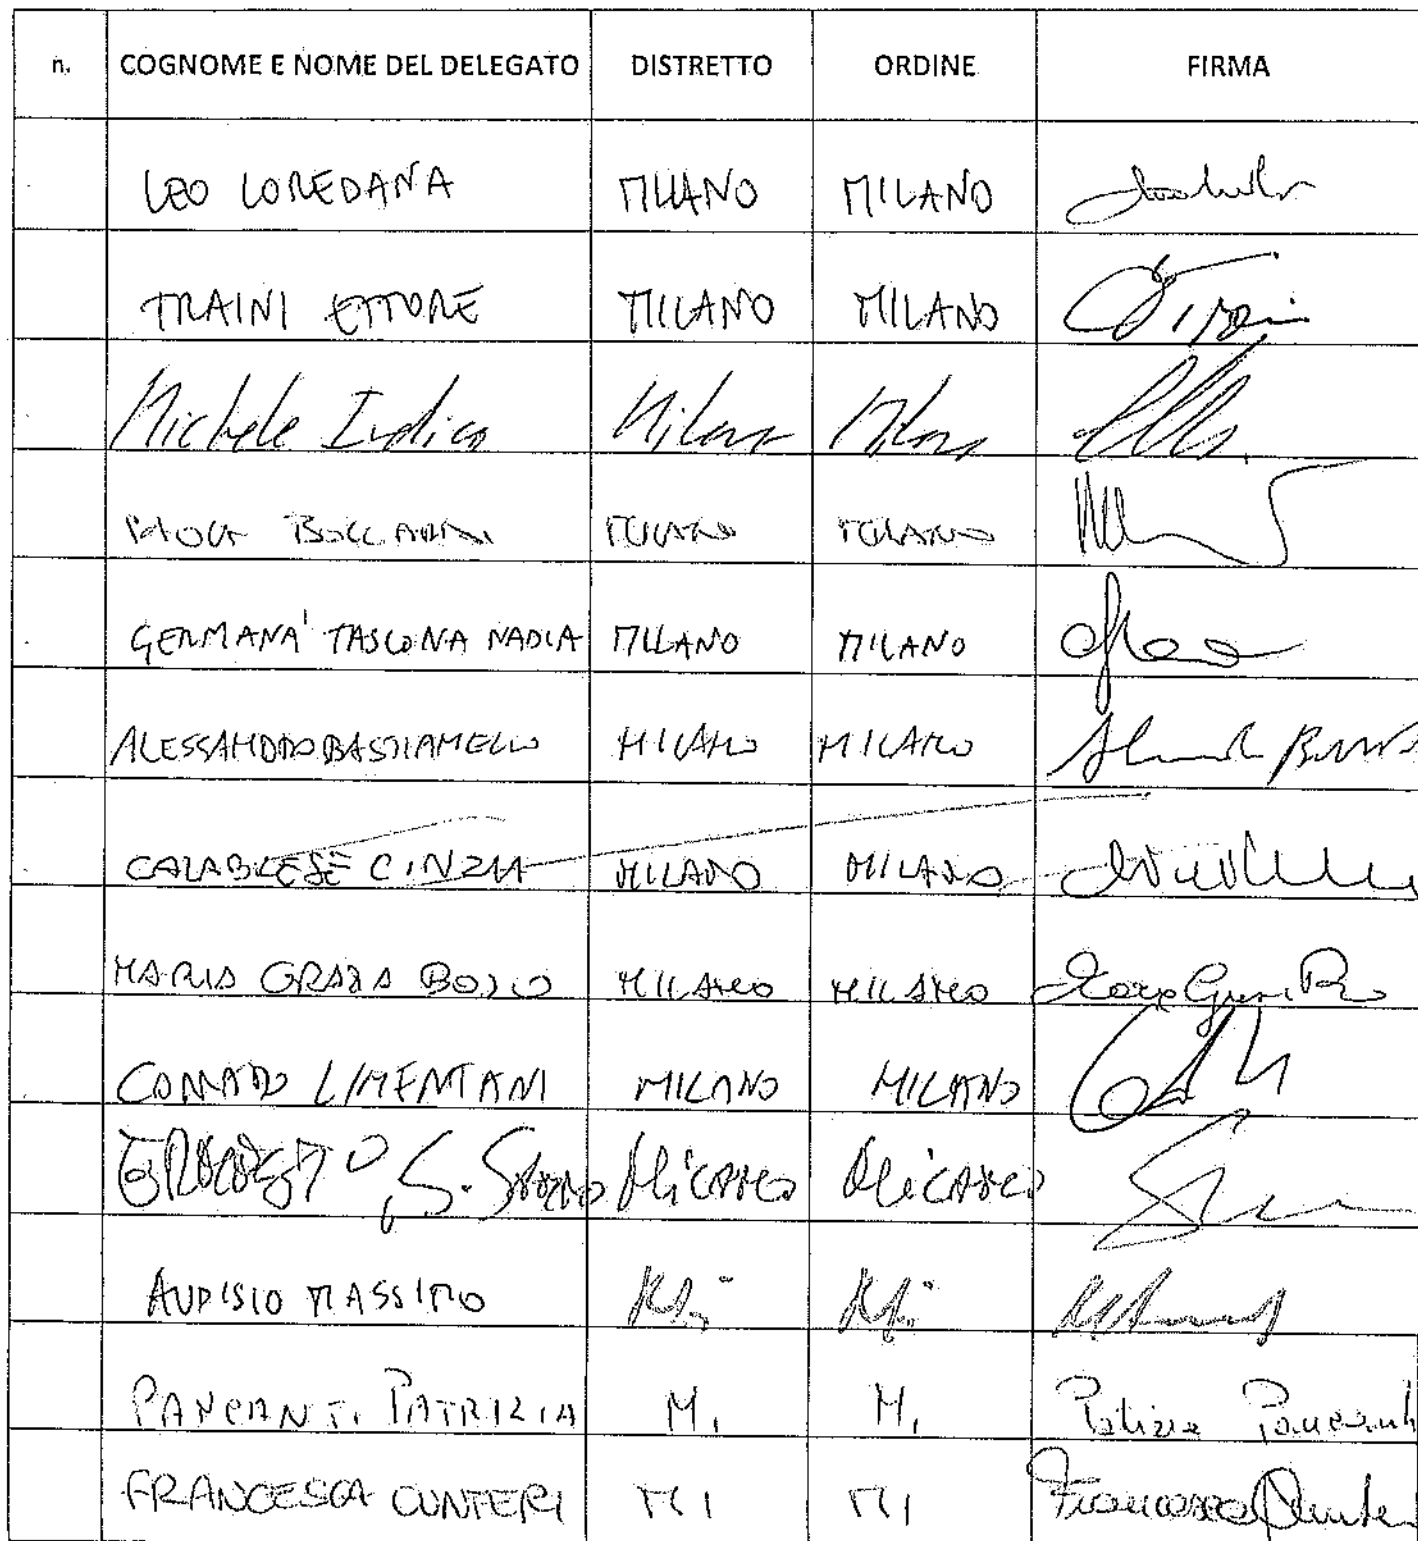 n. COGNOME E NOME DEL DELEGATO DISTRETTO ORDINE FIRMA
LEO LOREDANA MILANO MILANO
TRAINI ETTORE MILANO MILANO
Michele Indica Milano Milano
PAOLA BOCCARDI MILANO MILANO
GERMANA' TASCONA NADIA MILANO MILANO
ALESSANDRO BASTIANELLO MILANO MILANO
CALABRESE CINZIA MILANO MILANO
MARIA GRAZIA BOSCO MILANO MILANO
CORRADO LIMENTANI MILANO MILANO
Milano Milano
AUDISIO MASSIMO
PANCANTI PATRIZIA MI MI Patrizia Pancanti
FRANCESCA CUNTERI MI MI Francesca Cunteri